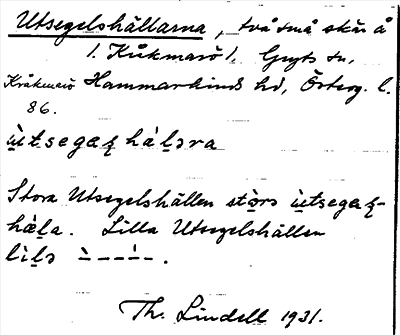 Utsegelshällarna, två små skär å
l. Kråkmarö l, Gryts sn,
Kråkmarö Hammarkinds hd, Österg. l.
86.
ùtsegəḷs hálə̣ra
Stora Utsegelshällen stòrs ùtsegəḷs-
hǽḷa. Lilla Utsegelshällen
lìḷə ˋ – – ˊ – .
Th. Lindell 1931.